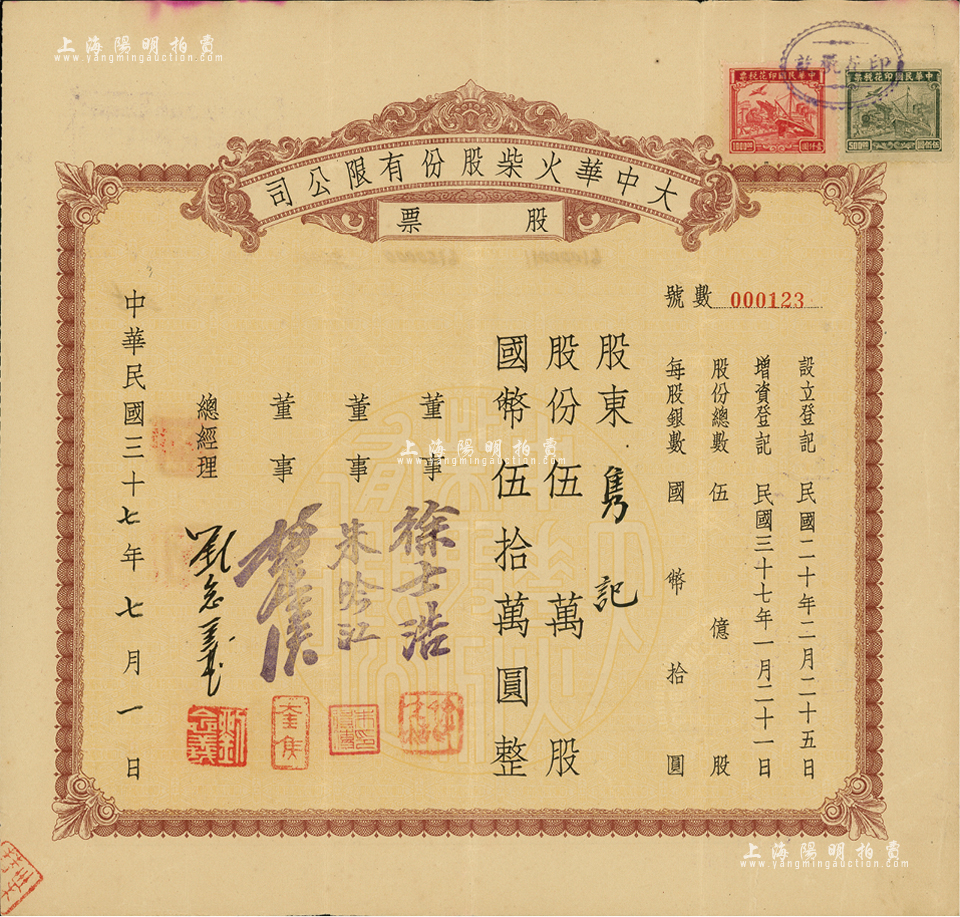 上海陽明拍賣
www.yangmingauction.com
中華民國印花稅票
1000
中華民國印花稅票
500
大中華火柴股份有限公司
股票
號數 000123
設立登記 民國二十年二月二十五日
增資登記 民國三十七年一月二十一日
股份總數 伍億股
每股銀數 國幣拾圓
股東 雋記
股份伍萬股
國幣伍拾萬圓整
上海陽明拍賣
www.yangmingauction.com
董事 徐士浩
董事 朱吟江
董事
總經理 劉念義
中華民國三十七年七月一日
上海陽明拍賣
www.yangmingauction.com